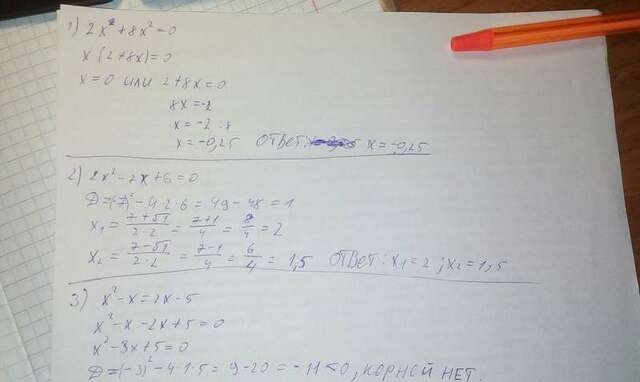 1) 2x² + 8x² = 0
x (2+8x) = 0
x = 0 или 2+8x = 0
8x = -2
x = -2 : 8
x = -0,25 Ответ: x = -0,25
2) 2x² - 2x + 6 = 0
D = (-7)² - 4·2·6 = 49 - 48 = 1
x₁ = (7+√1)/(2·2) = (7+1)/4 = 8/4 = 2
x₂ = (7-√1)/(2·2) = (7-1)/4 = 6/4 = 1,5 Ответ: x₁ = 2; x₂ = 1,5
3) x² - x = 2x - 5
x² - x - 2x + 5 = 0
x² - 3x + 5 = 0
D = (-3)² - 4·1·5 = 9 - 20 = -11 < 0, корней нет.